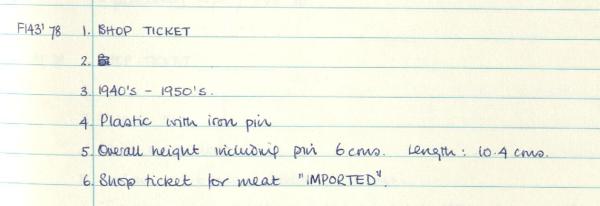 F143' 78 1. SHOP TICKET
2.
3. 1940's - 1950's.
4. Plastic with iron pin
5. Overall height including pin 6 cms. Length: 10.4 cms.
6. Shop ticket for meat "IMPORTED".